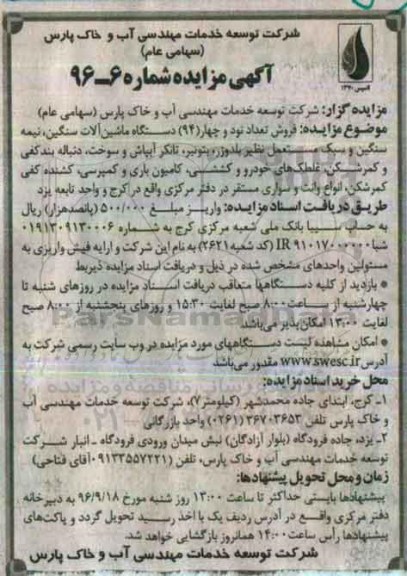 شرکت توسعه خدمات مهندسی آب و خاک پارس
(سهامی عام)
آگهی مزایده شماره ۶-۹۶
مزایده گزار: شرکت توسعه خدمات مهندسی آب و خاک پارس (سهامی عام)
موضوع مزایده: فروش تعداد نود و چهار (۹۴) دستگاه ماشین‌آلات سنگین، نیمه
سنگین و سبک مستعمل نظیر بلدوزر، بتونیر، تانکر آبپاش و سوخت، دنباله بندکفی
و کمرشکن، غلطک‌های خودرو و کششی، کامیون باری و کمپرسی، کشنده کفی
کمرشکن، انواع وانت و سواری مستقر در دفتر مرکزی واقع در کرج و واحد تابعه یزد
طریق دریافت اسناد مزایده: واریز مبلغ ۵۰۰/۰۰۰ (پانصدهزار) ریال
به حساب سیبا بانک ملی شعبه مرکزی کرج به شماره ۰۱۹۱۳۰۹۱۳۰۰۰۶
شبا IR ۹۱۰۱۷۰۰۰۰۰ (کد شعبه ۲۶۲۱) به نام این شرکت و ارایه فیش واریزی به
مسئولین واحدهای مشخص شده در ذیل و دریافت اسناد مزایده ذیربط
* بازدید از کلیه دستگاهها متعاقب دریافت اسناد مزایده در روزهای شنبه تا
چهارشنبه از ساعت ۸:۰۰ صبح لغایت ۱۵:۳۰ و روزهای پنجشنبه از ۸:۰۰ صبح
لغایت ۱۳:۰۰ امکان‌پذیر می‌باشد.
* امکان مشاهده لیست دستگاههای مورد مزایده در وب سایت رسمی شرکت به
آدرس www.swesc.ir مقدور می‌باشد.
محل خرید اسناد مزایده:
۱- کرج، ابتدای جاده محمدشهر (کیلومتر۷)، شرکت توسعه خدمات مهندسی آب
و خاک پارس تلفن ۳۶۷۰۳۶۵۳ (۰۲۶۱) واحد بازرگانی
۲- یزد، جاده فرودگاه (بلوار آزادگان) نبش میدان ورودی فرودگاه - انبار شرکت
توسعه خدمات مهندسی آب و خاک پارس، تلفن (۰۹۱۳۳۵۵۷۲۲۱ آقای فتاحی)
زمان و محل تحویل پیشنهادها:
پیشنهادها بایستی حداکثر تا ساعت ۱۳:۰۰ روز شنبه مورخ ۹۶/۹/۱۸ به دبیرخانه
دفتر مرکزی واقع در آدرس ردیف یک با اخذ رسید تحویل گردد و پاکت‌های
پیشنهادها رأس ساعت ۱۴:۰۰ همانروز بازگشایی خواهد شد.
شرکت توسعه خدمات مهندسی آب و خاک پارس